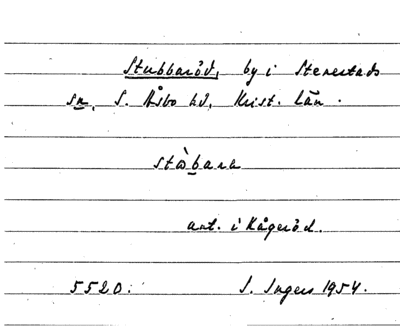 Stubbaröd, by i Stenestads
sn, S. Åsbo hd, Krist. län.
ant. i Kågeröd.
5520. I. Ingers 1954.